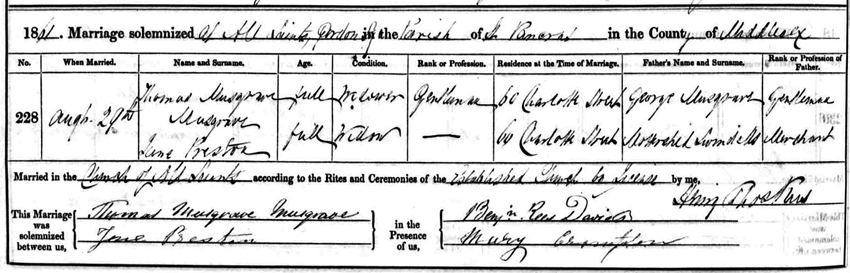 1861. Marriage solemnized at All Saints, Gordon Sq in the Parish of St Pancras in the County of Middlesex
No. When Married. Name and Surname. Age. Condition. Rank or Profession. Residence at the Time of Marriage. Father's Name and Surname. Rank or Profession of Father.
228 Augt. 29th Thomas Musgrave Musgrave full Widower Gentleman 60 Charlotte Street George Musgrave Gentleman
Jane Preston full Widow — 60 Charlotte Street Swindells Merchant
Married in the Church of All Saints according to the Rites and Ceremonies of the Established Church by License by me,
This Marriage was solemnized between us, Thomas Musgrave Musgrave
Jane Preston
in the Presence of us, Benjn Rees Davids
Mary Crompton